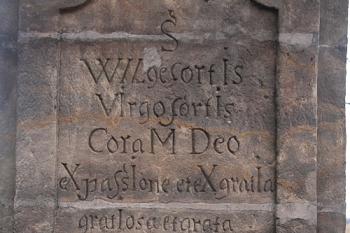 S
WILgefortIs
VIrgo fortIs
Cora M Deo
eX passIone et eX graIIa
gratIosa et grata